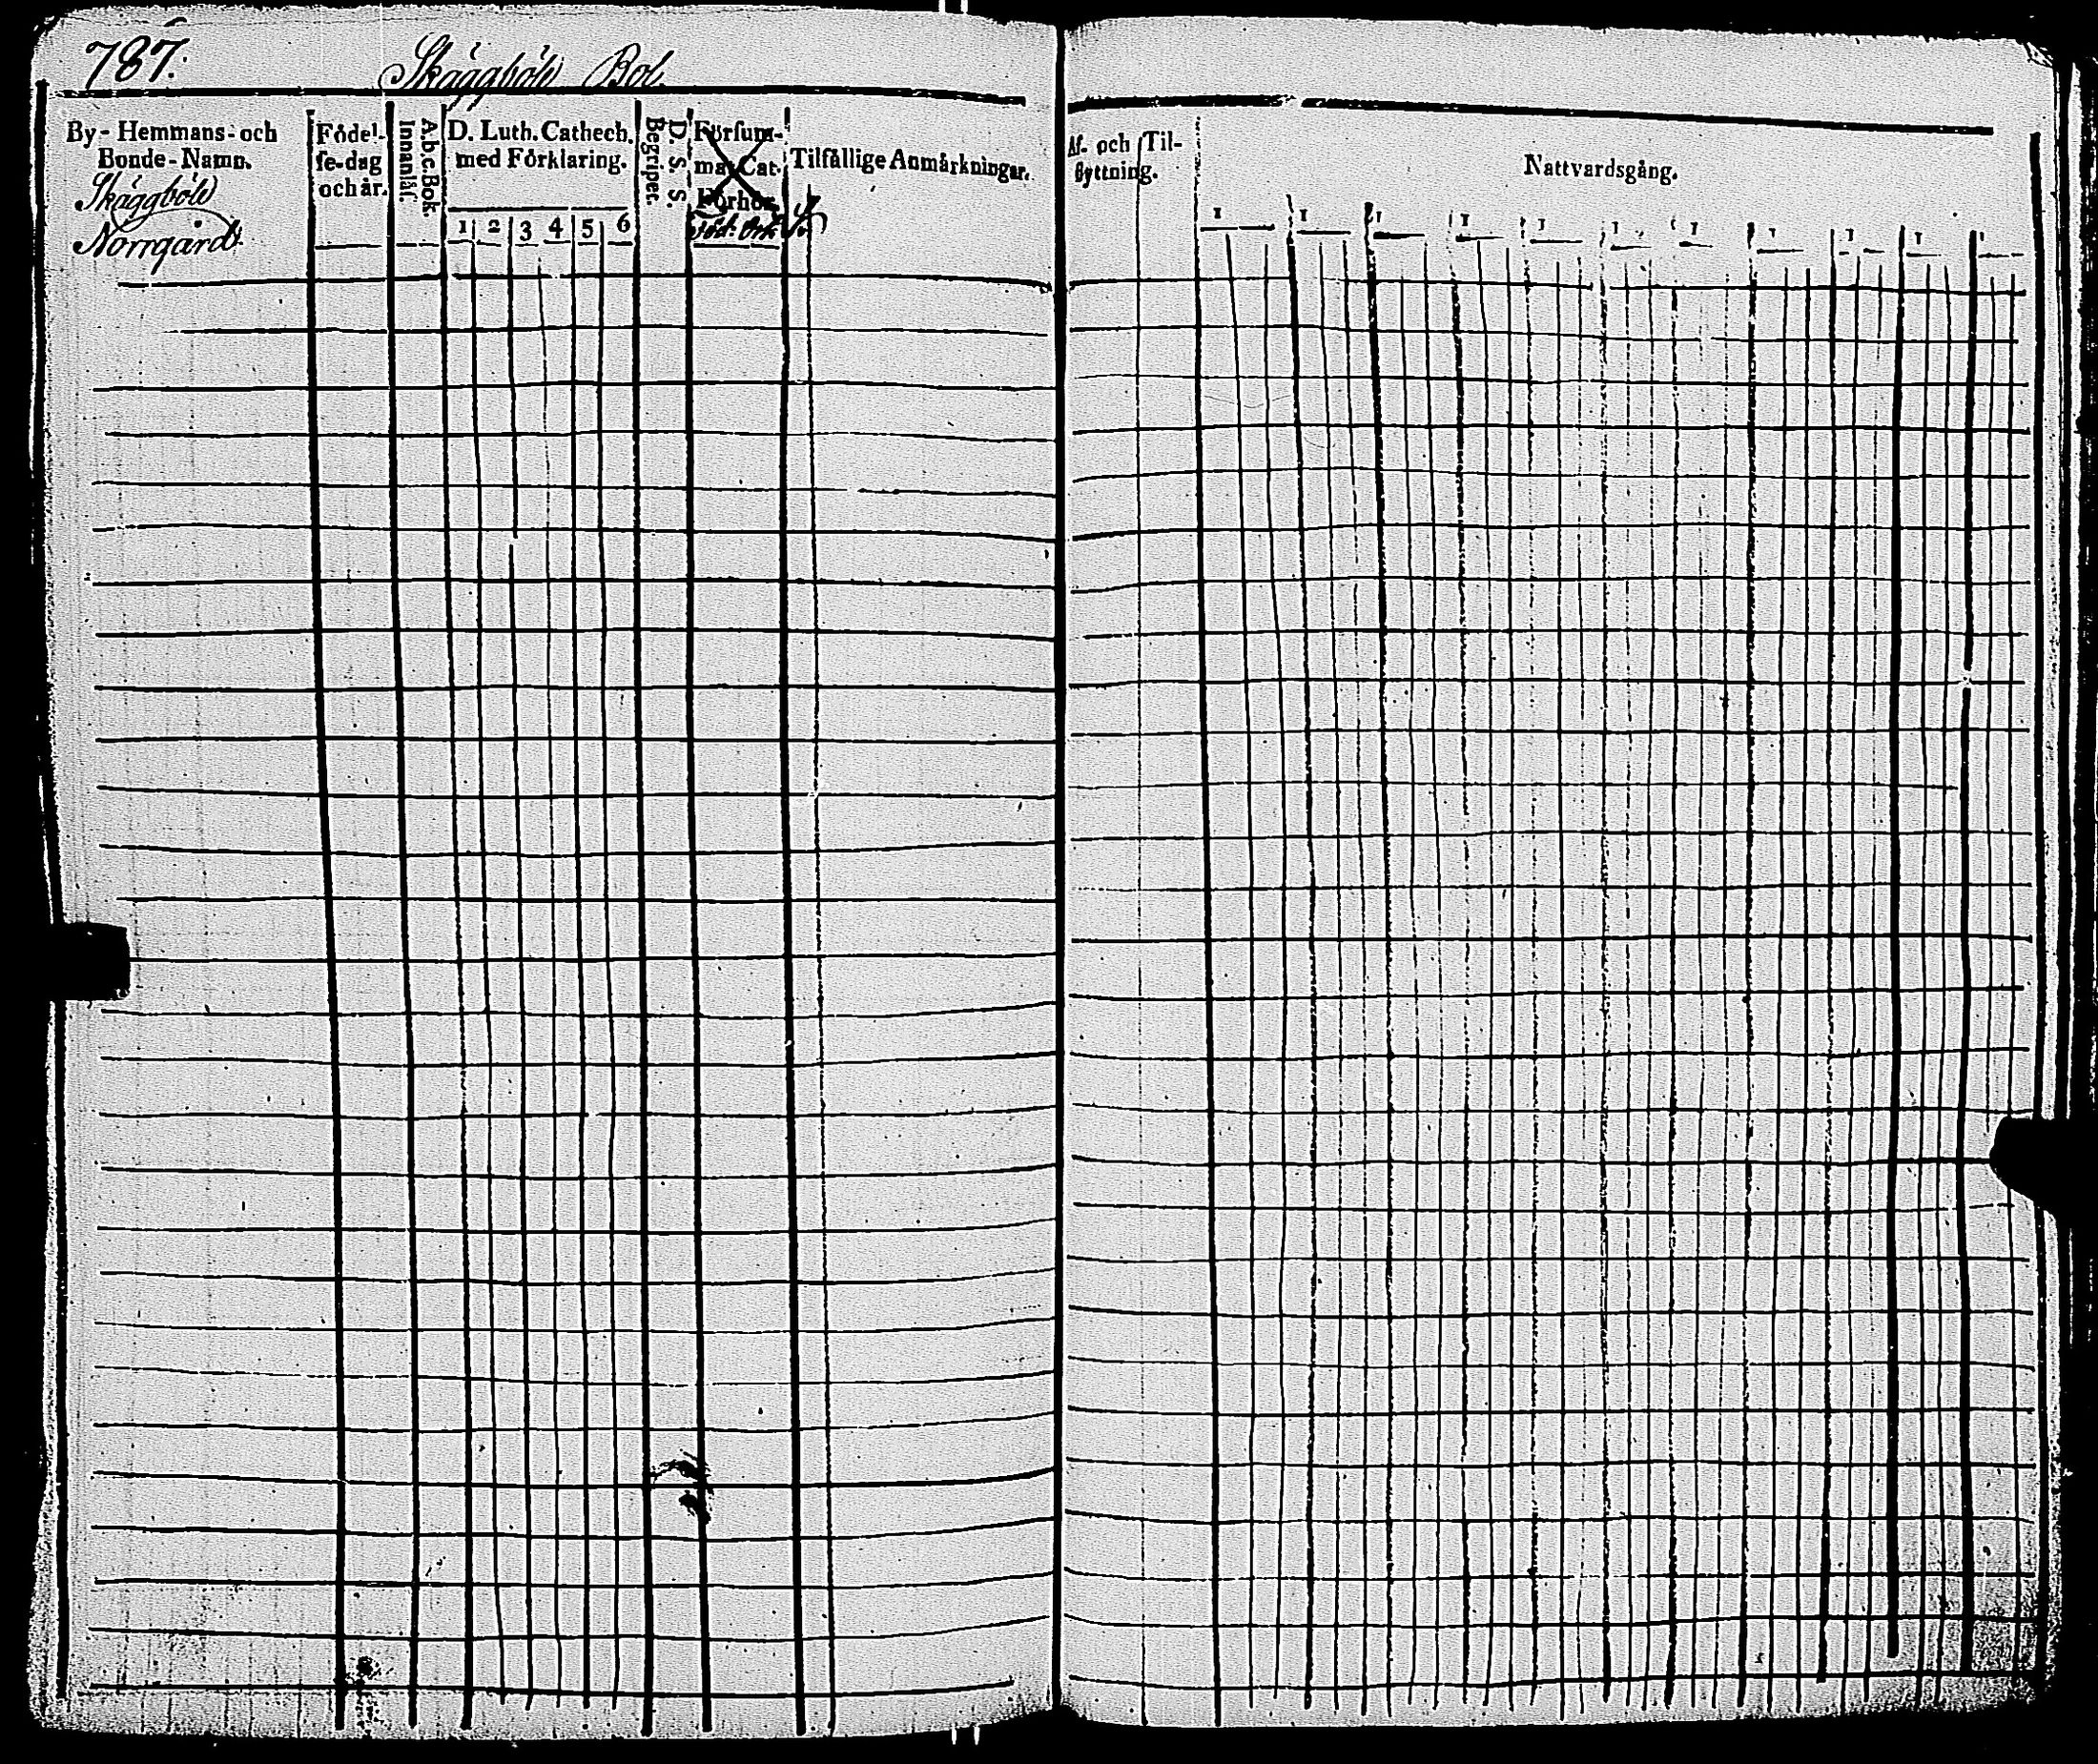 787.
Skäggböle Bol.
By-Hemmans- och
Bonde-Namn.
Skäggböle
Norrgård
Födel-
se-dag
och år.
A.b.c.Bok.
Innanläs.
D. Luth. Cathech.
med Förklaring.
1 2 3 4 5 6
D. S. S.
Begriper.
Försum-
mat Cat-
Förhör.
Föd. Ort
Tilfällige Anmärkningar.
Af- och Til-
flyttning.
Nattvardsgång.
1 1 1 1 1 1 1 1 1 1 1